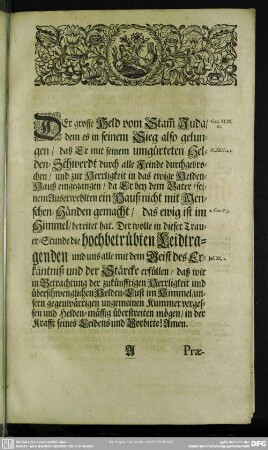 DEr grosse Held vom Stam̃ Juda/
dem es in seinem Sieg also gelun-
gen / daß Er mit seinem umgürteten Hel-
den-Schwerdt durch alle Feinde durchgebro-
chen / und zur Herrligkeit in das ewige Helden-
Hauß eingegangen / da Er bey dem Vater / sei-
nem Auserwehlten ein Hauß nicht mit Men-
schen-Händen gemacht / das ewig ist im
Himmel / bereitet hat. Der wolle in dieser Trau-
er-Stunde die hochbetrübten Leidtra-
genden und uns alle mit dem Geist des Er-
käntniß und der Stärcke erfüllen / daß wir
in Betrachtung der zukünfftigen Herrligkeit und
überschwenglichen Helden-Lust im Himmel / un-
sern gegenwärtigen ungemeinen Kummer verges-
sen und Helden-müssig überstreiten mögen / in der
Krafft seines Leidens und Vorbitte! Amen.
A Præ-
Gen. XLIX.
2. Cor. V. 1.